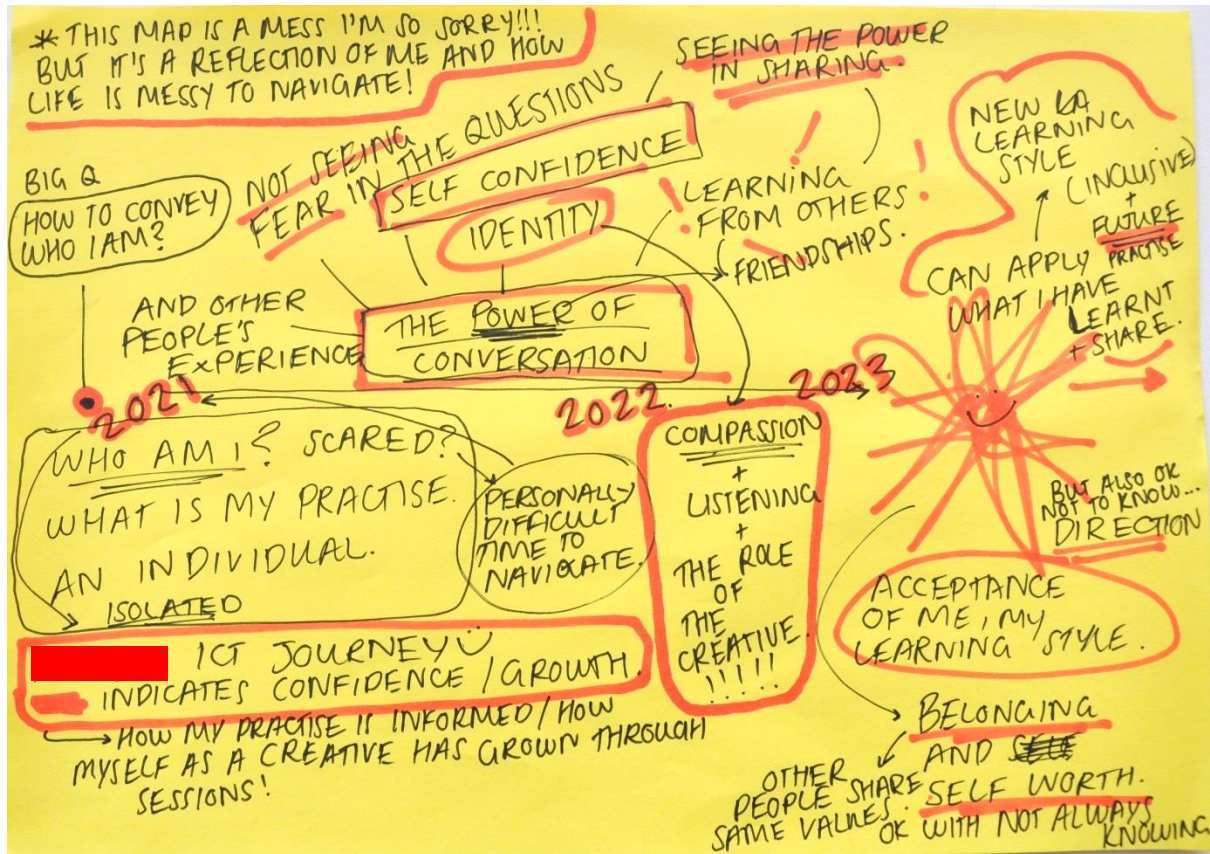 * THIS MAP IS A MESS I'M SO SORRY!!!
BUT IT'S A REFLECTION OF ME AND HOW
LIFE IS MESSY TO NAVIGATE!
SEEING THE POWER
IN SHARING.
NOT SEEING
FEAR IN THE QUESTIONS
SELF CONFIDENCE
IDENTITY
BIG Q
HOW TO CONVEY
WHO I AM?
! LEARNING !
! FROM OTHERS !
FRIENDSHIPS.
NEW
LEARNING
STYLE
(INCLUSIVE)
+
FUTURE
PRACTISE
CAN APPLY
WHAT I HAVE
LEARNT
+ SHARE.
AND OTHER
PEOPLE'S
EXPERIENCE
THE POWER OF
CONVERSATION
2021
2022.
2023
WHO AM I? SCARED?
WHAT IS MY PRACTISE.
AN INDIVIDUAL.
ISOLATED
PERSONALLY
DIFFICULT
TIME TO
NAVIGATE.
COMPASSION
+
LISTENING
+
THE ROLE
OF
THE
CREATIVE.
!!!!!
BUT ALSO OK
NOT TO KNOW...
DIRECTION
ACCEPTANCE
OF ME, MY
LEARNING STYLE.
ICT JOURNEY
INDICATES CONFIDENCE / GROWTH.
HOW MY PRACTISE IS INFORMED / HOW
MYSELF AS A CREATIVE HAS GROWN THROUGH
SESSIONS!
BELONGING
AND
SELF WORTH.
OTHER
PEOPLE SHARE
SAME VALUES.
OK WITH NOT ALWAYS
KNOWING